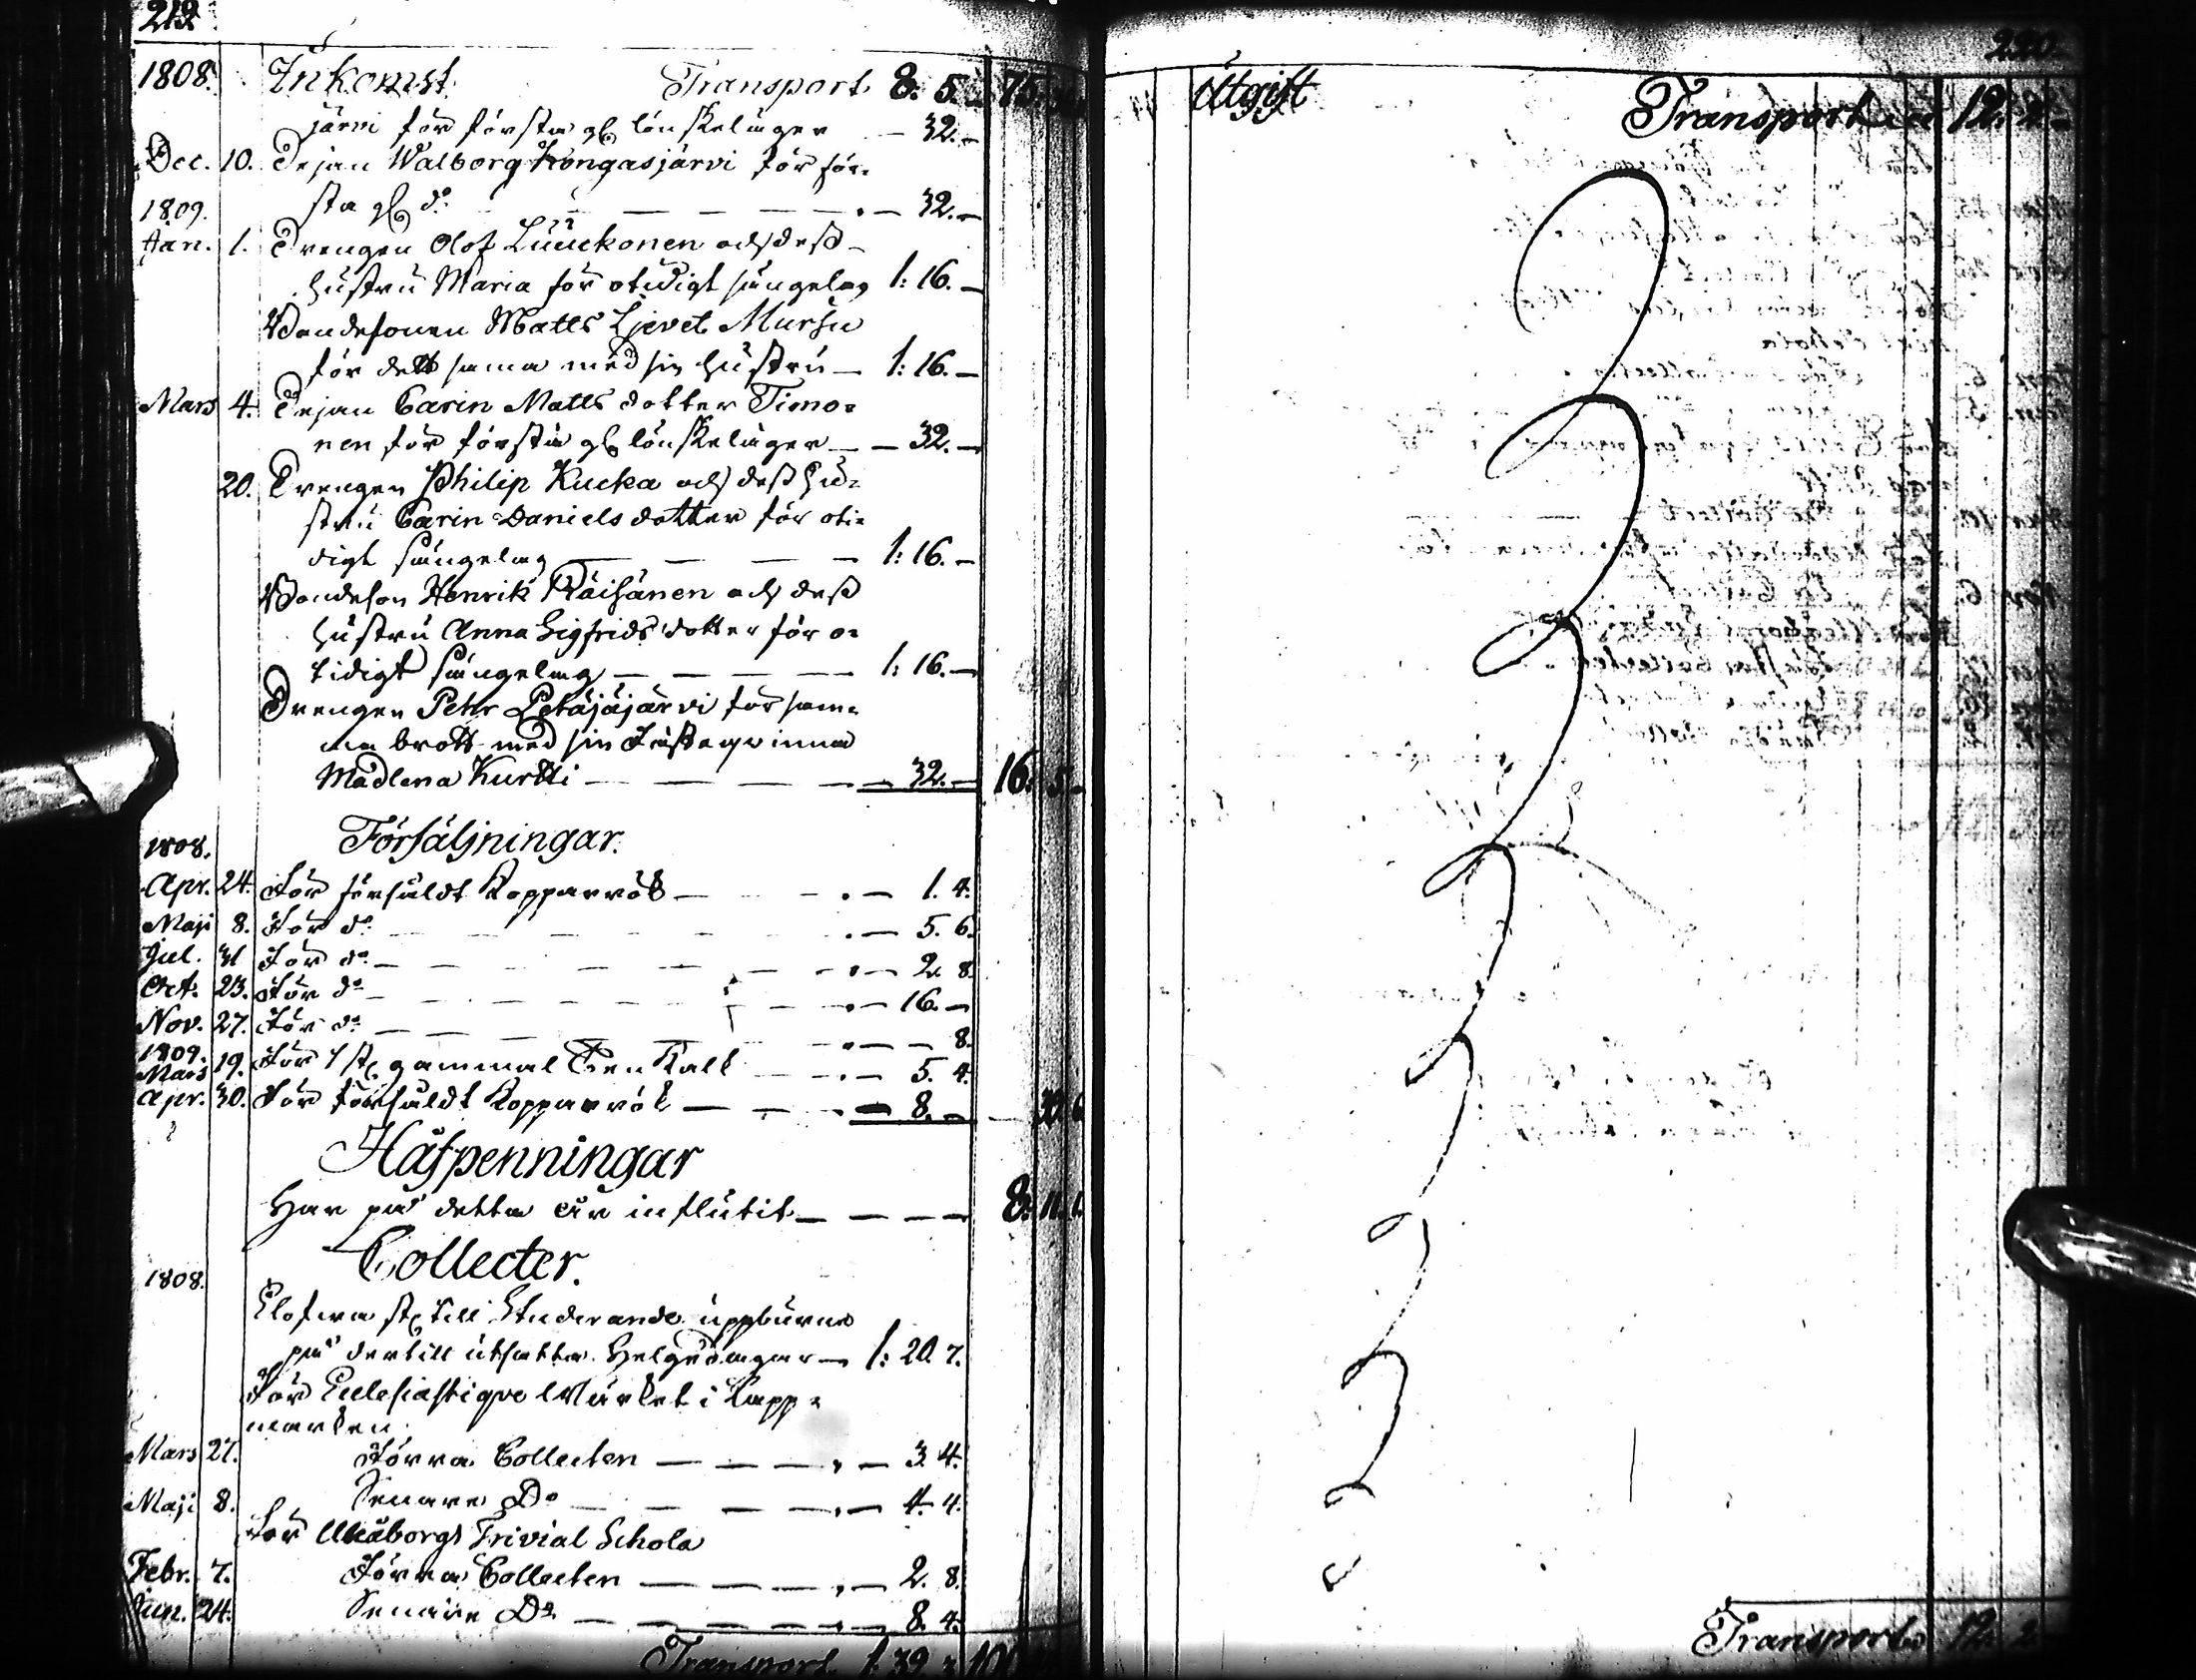 219.
1808. Inkomst. Transport. 8. 5. 75.
järvi för första gg lönskeläger — 32. —
Dec. 10. Pejan Walborg Kongasjärvi för för-
sta gg do — — — — 32. —
1809.
Jan. 1. Drengen Olof Luuckonen och dess
hustru Maria för otidigt sängelag 1: 16. —
Bondesonen Matts Ljevet Mursu
för dett sama med sin hustru — 1: 16. —
Mars 4. Pejan Carin Matts dotter Timo-
nen för första gg lönskeläger — — 32. —
20. Drengen Philip Kucka och dess hu-
stru Carin Daniels dotter för oti-
digt sängelag — — — 1: 16. —
Bondeson Henrik Räisänen och dess
hustru Anna Sigfrids dotter för o-
tidigt sängelag — — — — 1: 16. —
Drengen Petter Petäjäjärvi för sam-
ma brott med sin Fästeqvinna
Madlena Kurtti — — — — 32. — 16: 5. —
1808. Försäljningar.
Apr. 24. För försåldt Kopparrök — — . — 1. 4.
Maji 8. För do — — — — . — 5. 6.
Jul. 31 För do — — — — . — 2. 8.
Oct. 23. För do — — — — . — 16. —
Nov. 27. För do — — — — . — — 8.
1809.
Mars 19. För 1 st. gammal — . — 5. 4.
Apr. 30. För försåldt Kopparrök — — . — 8. — 39. 6
Håfpenningar
Har på detta år influtit — — — — 8. 11. 1.
Collecter.
1808.
Elofva st. till Studerande uppburne
på dertill utsatta Helgedagar — 1: 20. 7.
För Ecclesiastique Wärket i Lapp-
marken
Mars 27. Förra Collecten — — — . — 3. 4.
Maji 8. Senare Do — — — . — 4. 4.
För Uleåborgs Trivial Schola
Febr. 7. Förra Collecten — — — . — 2. 8.
Jun. 24. Senare Do — — — . — 8. 4.
Transport 1: 39. 3. 100
220.
Utgift
Transport 12. 2. —
Transport 12. 2.